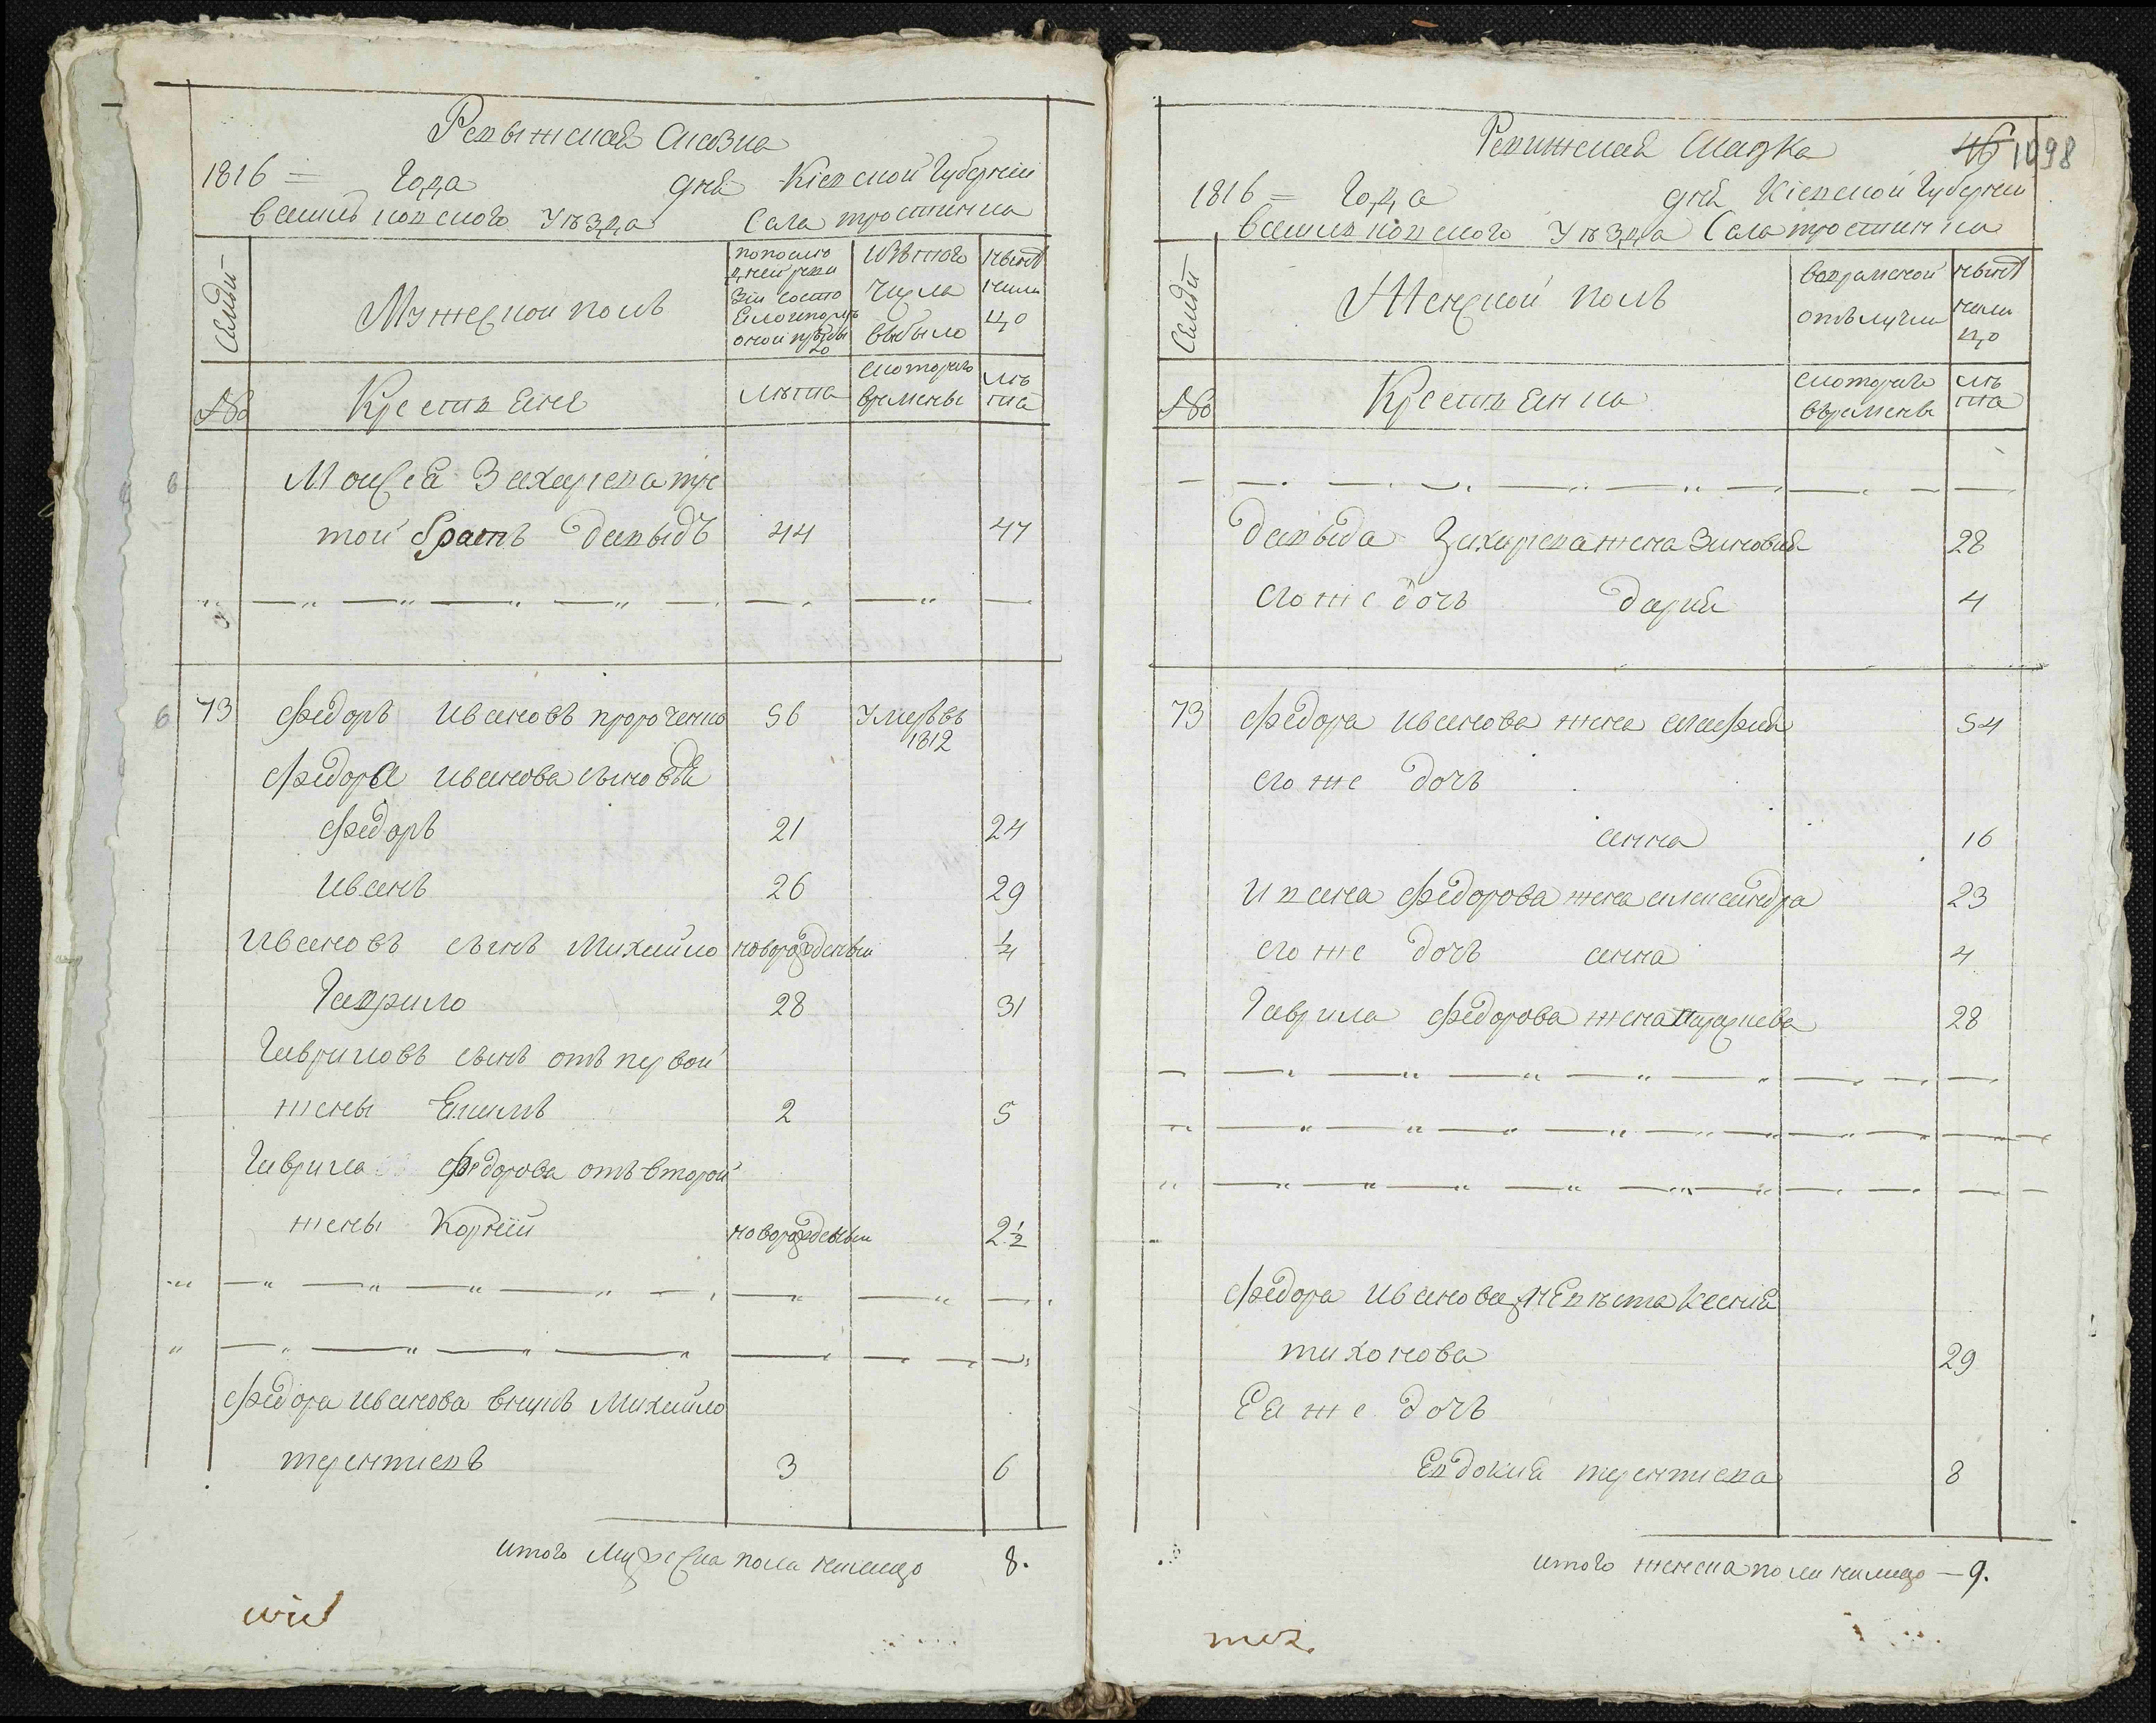 Ревыжская Сказка
1816 = года дня Кіевской Губерніи
васильковского уѣзда Села тростинка
Семьи
Мужеской полъ
попослѣ
дней реви
зіи состо
яло ипослѣ
оной прибы
ло
изътого
числа
выбыло
нынѣ
нали
цо
№
Крестьяне
лѣта
скоторого
времены
лѣ
та
Моисея Захариева тре
той братъ давыдъ 44 47
73 Федоръ Ивановъ пророченко 56 умеръ въ
1812
Федора Иванова сыновья
Федоръ 21 24
Иванъ 26 29
Ивановъ сынъ Михайло новорожденный 1/4
Гаврило 28 31
Гавриловъ сынъ отъ первой
жены Якимъ 2 5
Гаврила Федорова отъ второй
жены Корній новорожденный 2 1/2
Федора Иванова внукъ Михайло
терентиевъ 3 6
итого мужеска пола налицо 8.
Ревижская Сказка 46 1098
1816 = года дня Кіевской Губернии
васильковского уѣзда Села тростинка
Семьи
Женской полъ
вовременой
отълучки
нынѣ
нали
цо
№
Крестьянка
скоторого
въремены
лѣ
та
давыда Захариева жена Зиновия 28
его же дочь дария 4
73 Федора Иванова жена 54
его же дочь
анна 16
Ивана Федорова жена александра 23
его же дочь анна 4
Гаврила Федорова жена Параскева 28
Федора Иванова невѣста Ксения
тихонова 29
Ея же дочь
Евдокия терентиева 8
итого женска пола налицо — 9.